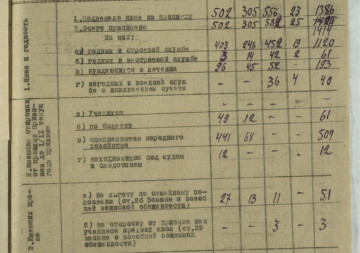 1.Явка и годность
1.Подлежало явке на приписку 502 305 556 23 1386
2.Всего приписано 502 305 582 25
1414
Из них:
а) годных к строевой службе 403 246 452 19 1120
б) годных к нестроевой службе 3 14 42 2 61
в) нуждающихся в лечении 96 45 52 - 193
г) негодных к военной служ-
бе с исключением с учета - - 36 4 40
- - - - -
а) Учащихся 49 12 - - 61
б) по болезни - - - - -
в) специалистов
хозяйства 441 68 - - 509
г) находящихся под судом
и следствием 12 - - - 12
а) на льготу по семейному по-
ложению (ст.26 Закона о всеоб-
щей воинской обязанности) 27 13 11 - 51
б) на отсрочку от призыва как
учащиеся средних школ (ст.29
закона о всеобщей воинской
обязанности) - - 3 - 3